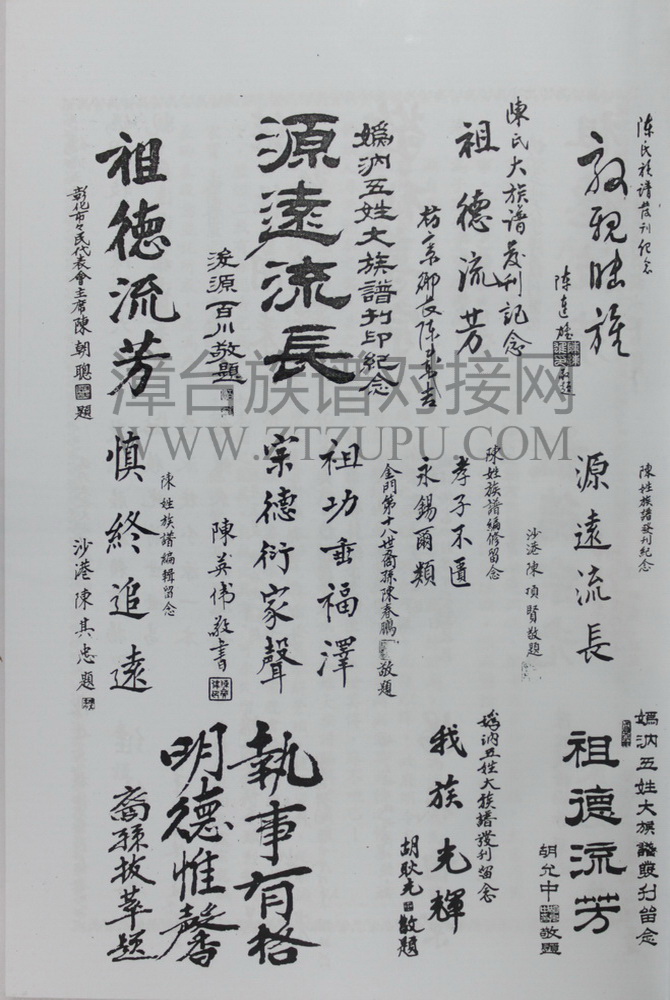 陳氏族譜發刊紀念
敦親睦族
陳氏大族譜發刊記念
祖德流芳
媯汭五姓大族譜刊印紀念
源遠流長
浚源百川敬題
祖德流芳
彰化市市民代表會主席陳朝聰題
陳姓族譜發刊紀念
源遠流長
沙港陳項賢敬題
陳姓族譜編修留念
孝子不匱
永錫爾類
金門第十八世裔孫陳春鵬敬題
祖功垂福澤
宗德衍家聲
陳英偉敬書
陳姓族譜編輯留念
慎終追遠
沙港陳其忠題
媯汭五姓大族譜發刊留念
祖德流芳
胡允中敬題
媯汭五姓大族譜發刊留念
我族光輝
胡耿光敬題
執事有格
明德惟馨
裔孫拔萃題
漳台族谱对接网
WWW.ZTZUPU.COM